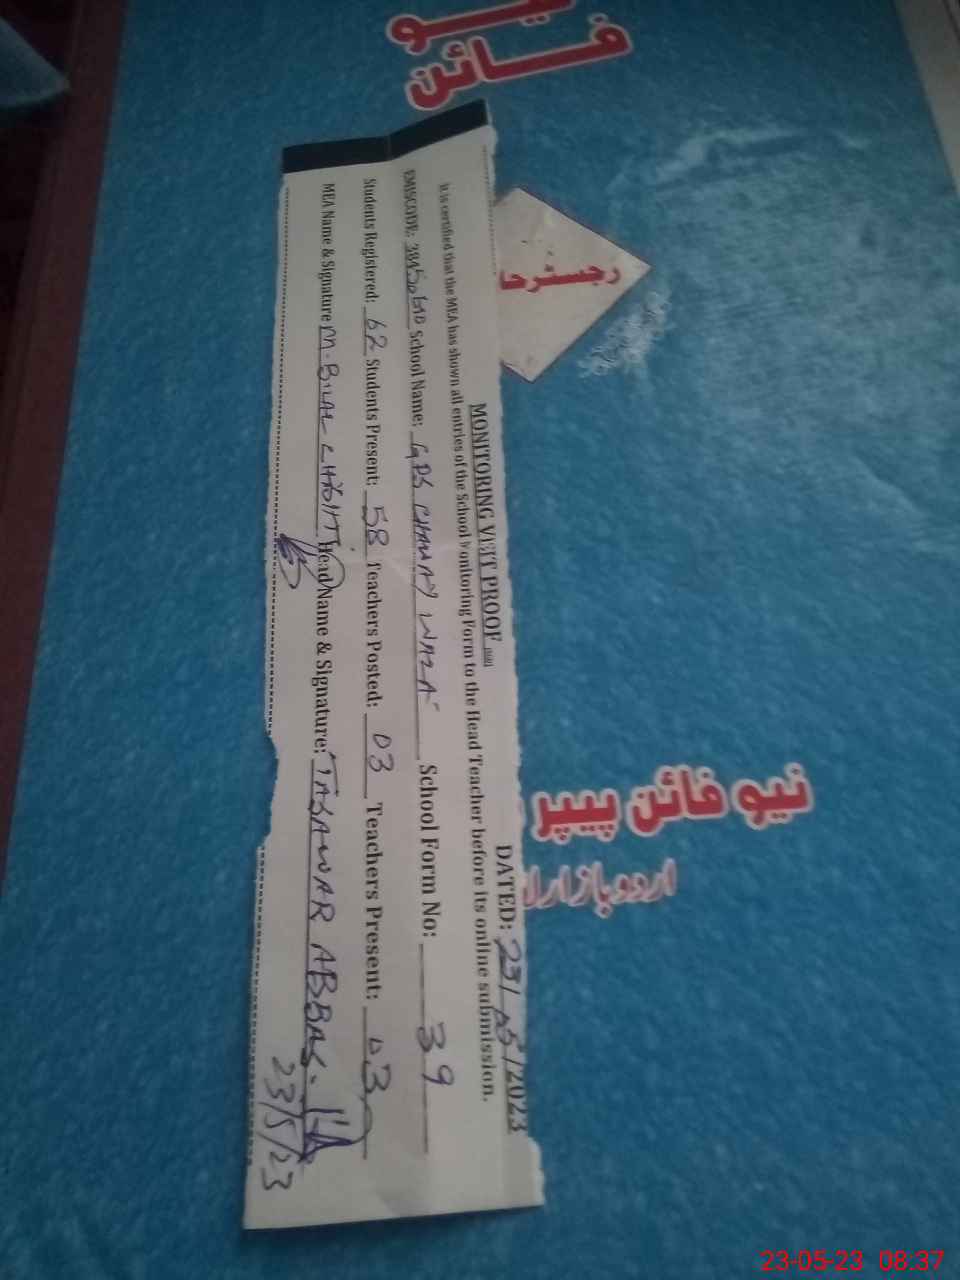 نیو
فائن
رجسٹر
MONITORING VISIT PROOF
DATED: 23/05/2023
It is certified that the MEA has shown all entries of the School Monitoring Form to the Head Teacher before its online submission.
EMISCODE: School Name: GPS WALA School Form No: 39
Students Registered: 62 Students Present: 58 Teachers Posted: 03 Teachers Present: 03
MEA Name & Signature M. BILAL Head Name & Signature: TASAWAR ABBAS.
23/5/23
نیو فائن پیپر
اردو بازار
23-05-23 08:37